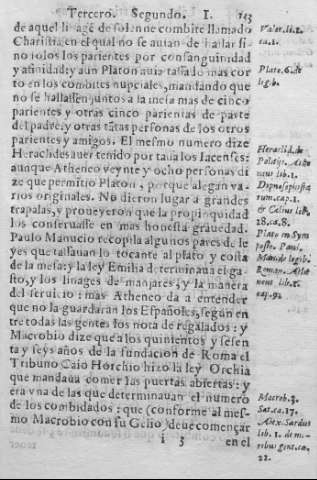 Tercero. Segundo. I. 143
de aquel linage de solenne combite llamado
Charistia en el qual no se auian de hallar si-
no solos los parientes por consanguinidad
y afinidad: y aun Platon auia tassado mas cor
to en los combites nupciales, mandando que
no se hallassen juntos a la mesa mas de cinco
parientes y otras cinco parientas de parte
del padre, y otras tãtas personas de los otros
parientes y amigos. El mesmo numero dize
Heraclides auer tenido por tassa los Iacenses:
aunque Atheneo veynte y ocho personas di
ze que permitio Platon, porque alegan va-
rios originales. No dieron lugar a grandes
trapalas, y proueyeron que la propinquidad
los conseruasse en mas honesta grauedad.
Paulo Manucio recopila algunos pares de le
yes que tassauan lo tocante al plato y costa
de la mesa: y la ley Emilia determinaua el ga-
sto, y los linages de manjares, y la manera
del seruicio: mas Atheneo da a entender
que no la guardaran los Españoles, segun en
tre todas las gentes los nota de regalados: y
Macrobio dize que a los quinientos y sesen
ta y seys años de la fundacion de Roma el
Tribuno Caio Horchio hizo la ley Orchia
que mandaua comer las puertas abiertas: y
era vna de las que determinauan el numero
de los combidados: que (conforme al mes-
mo Macrobio con su Gelio) deue começar
i 3 en el
Valer. li. 2.
ca. 1.
Plato. 6. de
legib.
Heraclid. de
Athe
nae. lib. 1.
Dipnosophist
arum. cap. 1.
& Celius lib.
28. ca. 8.
Plato in Sym
posio. Paul.
Man. de legib.
Roman. Athe
nae. lib. 1.
Macrob. 3.
Sat. ca. 17.
Alex. Sardus
lib. 1. de mo-
ribus gent. ca.
22.